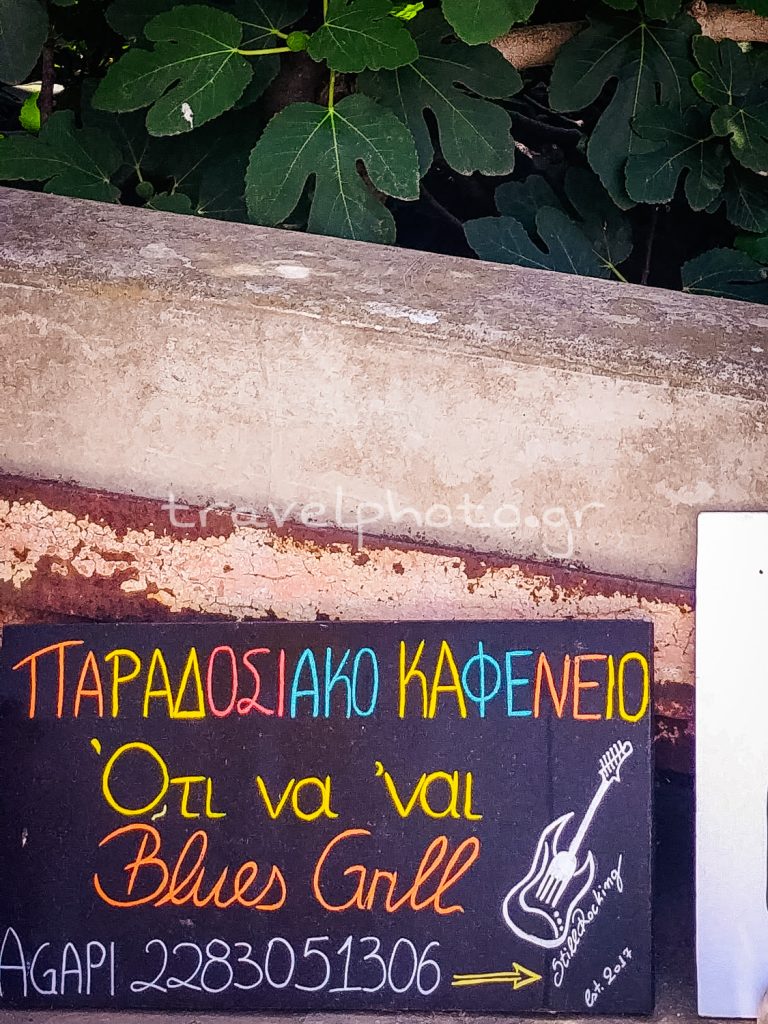 travelphoto.gr
ΠΑΡΑΔΟΣΙΑΚΟ ΚΑΦΕΝΕΙΟ
Ότι να 'ναι
Blues Grill
StillRocking
est. 2017
AGAPI 2283051306